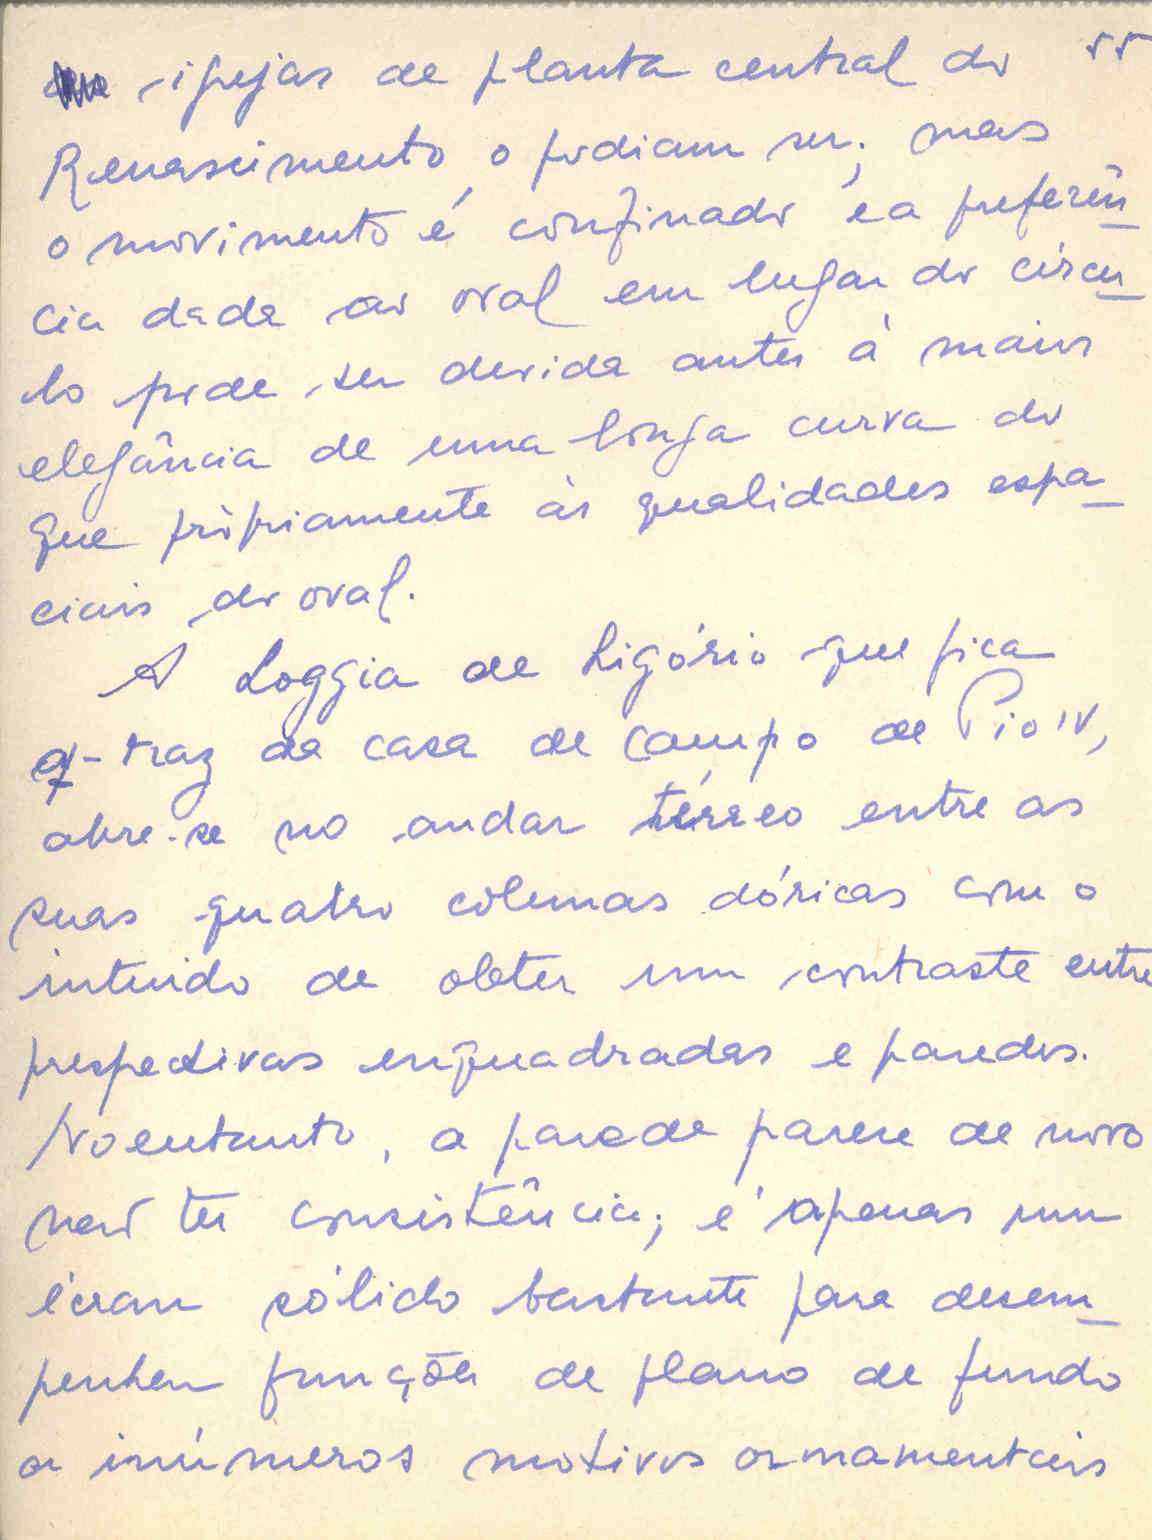 igrejas de planta central do 55
Renascimento o podiam ser; mas
o movimento é confinado e a preferên_
cia dada ao oval em lugar do círcu_
lo pode ser devida antes à maior
elegância de uma longa curva do
que pròpriamente às qualidades espa_
ciais do oval.
A Loggia de Ligório que fica
a-traz da casa de campo de Pio IV,
abre-se no andar térreo entre as
suas quatro colunas dóricas com o
intuido de obter um contraste entre
prespectivas enquadradas e paredes.
No entanto, a parede parece de novo
não ter consistência; é apenas um
écran sólido bastante para desem_
penhar funções de plano de fundo
a inúmeros motivos ornamentais